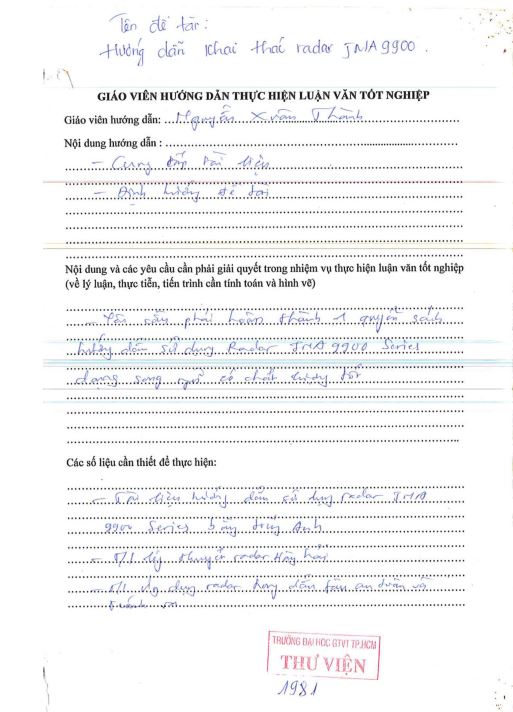 Tên đề tài:
Hướng dẫn khai thác radar JMA 9900.
GIÁO VIÊN HƯỚNG DẪN THỰC HIỆN LUẬN VĂN TỐT NGHIỆP
Giáo viên hướng dẫn: Nguyễn Xuân Thành
Nội dung hướng dẫn :
- Cung cấp tài liệu
- Định hướng đề tài
Nội dung và các yêu cầu cần phải giải quyết trong nhiệm vụ thực hiện luận văn tốt nghiệp
(về lý luận, thực tiễn, tiến trình cần tính toán và hình vẽ)
- Yêu cầu phải hoàn thành 1 quyển sách
hướng dẫn sử dụng Radar JMA 9900 Series
dạng song ngữ có chất lượng tốt
Các số liệu cần thiết để thực hiện:
- Tài liệu hướng dẫn sử dụng radar JMA
9900 Series bằng tiếng Anh
- T/l lý thuyết radar Hàng hải
- T/l dụng radar dẫn tàu an toàn và
tránh va
TRƯỜNG ĐẠI HỌC GTVT TP.HCM
THƯ VIỆN
1981